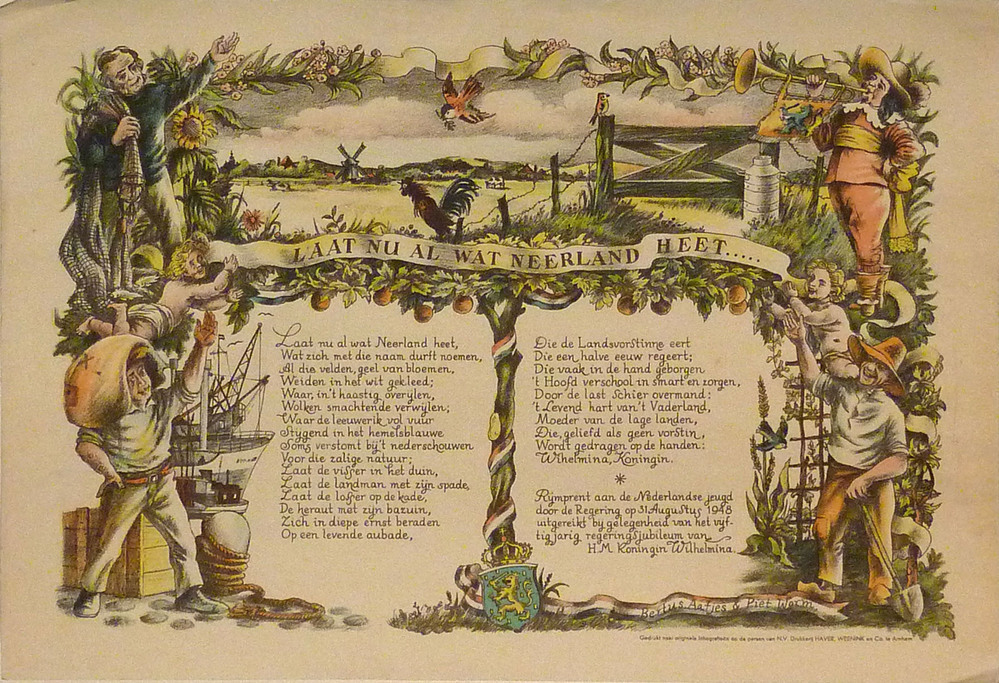 LAAT NU AL WAT NEERLAND HEET.....
Laat nu al wat Neerland heet,
Wat zich met die naam durft noemen,
Al die velden, geel van bloemen,
Weiden in het wit gekleed;
Waar, in 't haastig overijlen,
Wolken smachtende verwijlen;
Waar de leeuwerik vol vuur
Stijgend in het hemelsblauwe
Soms verstomt bij 't nederschouwen
Voor die zalige natuur;
Laat de visser in het duin,
Laat de landman met zijn spade,
Laat de losser op de kade,
De heraut met zijn bazuin,
Zich in diepe ernst beraden
Op een levende aubade,
Die de Landsvorstinne eert
Die een halve eeuw regeert;
Die vaak in de hand geborgen
't Hoofd verschool in smart en zorgen,
Door de last schier overmand:
't Levend hart van 't Vaderland,
Moeder van de lage landen,
Die, geliefd als geen vorstin,
Wordt gedragen op de handen:
Wilhelmina, Koningin.
*
Rijmprent aan de Nederlandse jeugd
door de Regering op 31 Augustus 1948
uitgereikt bij gelegenheid van het vijf-
tigjarig regeringsjubileum van
H.M. Koningin Wilhelmina.
Bertus Aafjes & Piet Worm.
Gedrukt naar originele lithografieën op de persen van N.V. Drukkerij HAVER, WEENINK en Co. te Arnhem